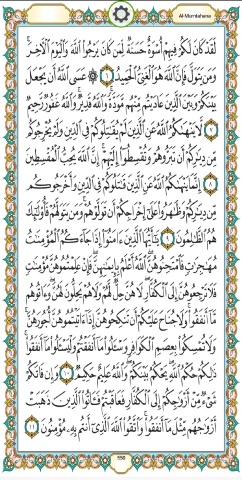 Al-Mumtahana
لَقَدْ كَانَ لَكُمْ فِيهِمْ أُسْوَةٌ حَسَنَةٌ لِمَن كَانَ يَرْجُوا اللَّهَ وَالْيَوْمَ الْآخِرَ ۚ
وَمَن يَتَوَلَّ فَإِنَّ اللَّهَ هُوَ الْغَنِيُّ الْحَمِيدُ ٦ ۞ عَسَى اللَّهُ أَن يَجْعَلَ
بَيْنَكُمْ وَبَيْنَ الَّذِينَ عَادَيْتُم مِنْهُم مَوَدَّةً ۚ وَاللَّهُ قَدِيرٌ ۚ وَاللَّهُ غَفُورٌ رَحِيمٌ
٧ لَا يَنْهَاكُمُ اللَّهُ عَنِ الَّذِينَ لَمْ يُقَاتِلُوكُمْ فِي الدِّينِ وَلَمْ يُخْرِجُوكُم
مِن دِيَارِكُمْ أَن تَبَرُّوهُمْ وَتُقْسِطُوا إِلَيْهِمْ ۚ إِنَّ اللَّهَ يُحِبُّ الْمُقْسِطِينَ
٨ إِنَّمَا يَنْهَاكُمُ اللَّهُ عَنِ الَّذِينَ قَاتَلُوكُمْ فِي الدِّينِ وَأَخْرَجُوكُم
مِن دِيَارِكُمْ وَظَاهَرُوا عَلَىٰ إِخْرَاجِكُمْ أَن تَوَلَّوْهُمْ ۚ وَمَن يَتَوَلَّهُمْ فَأُولَٰئِكَ
هُمُ الظَّالِمُونَ ٩ يَا أَيُّهَا الَّذِينَ آمَنُوا إِذَا جَاءَكُمُ الْمُؤْمِنَاتُ
مُهَاجِرَاتٍ فَامْتَحِنُوهُنَّ ۖ اللَّهُ أَعْلَمُ بِإِيمَانِهِنَّ ۖ فَإِنْ عَلِمْتُمُوهُنَّ مُؤْمِنَاتٍ
فَلَا تَرْجِعُوهُنَّ إِلَى الْكُفَّارِ ۖ لَا هُنَّ حِلٌّ لَهُمْ وَلَا هُمْ يَحِلُّونَ لَهُنَّ ۖ وَآتُوهُم
مَا أَنفَقُوا ۚ وَلَا جُنَاحَ عَلَيْكُمْ أَن تَنكِحُوهُنَّ إِذَا آتَيْتُمُوهُنَّ أُجُورَهُنَّ ۚ
وَلَا تُمْسِكُوا بِعِصَمِ الْكَوَافِرِ وَاسْأَلُوا مَا أَنفَقْتُمْ وَلْيَسْأَلُوا مَا أَنفَقُوا ۚ
ذَٰلِكُمْ حُكْمُ اللَّهِ ۖ يَحْكُمُ بَيْنَكُمْ ۚ وَاللَّهُ عَلِيمٌ حَكِيمٌ ١٠ وَإِن فَاتَكُمْ
شَيْءٌ مِنْ أَزْوَاجِكُمْ إِلَى الْكُفَّارِ فَعَاقَبْتُمْ فَآتُوا الَّذِينَ ذَهَبَتْ
أَزْوَاجُهُم مِثْلَ مَا أَنفَقُوا ۚ وَاتَّقُوا اللَّهَ الَّذِي أَنتُم بِهِ مُؤْمِنُونَ ١١
550